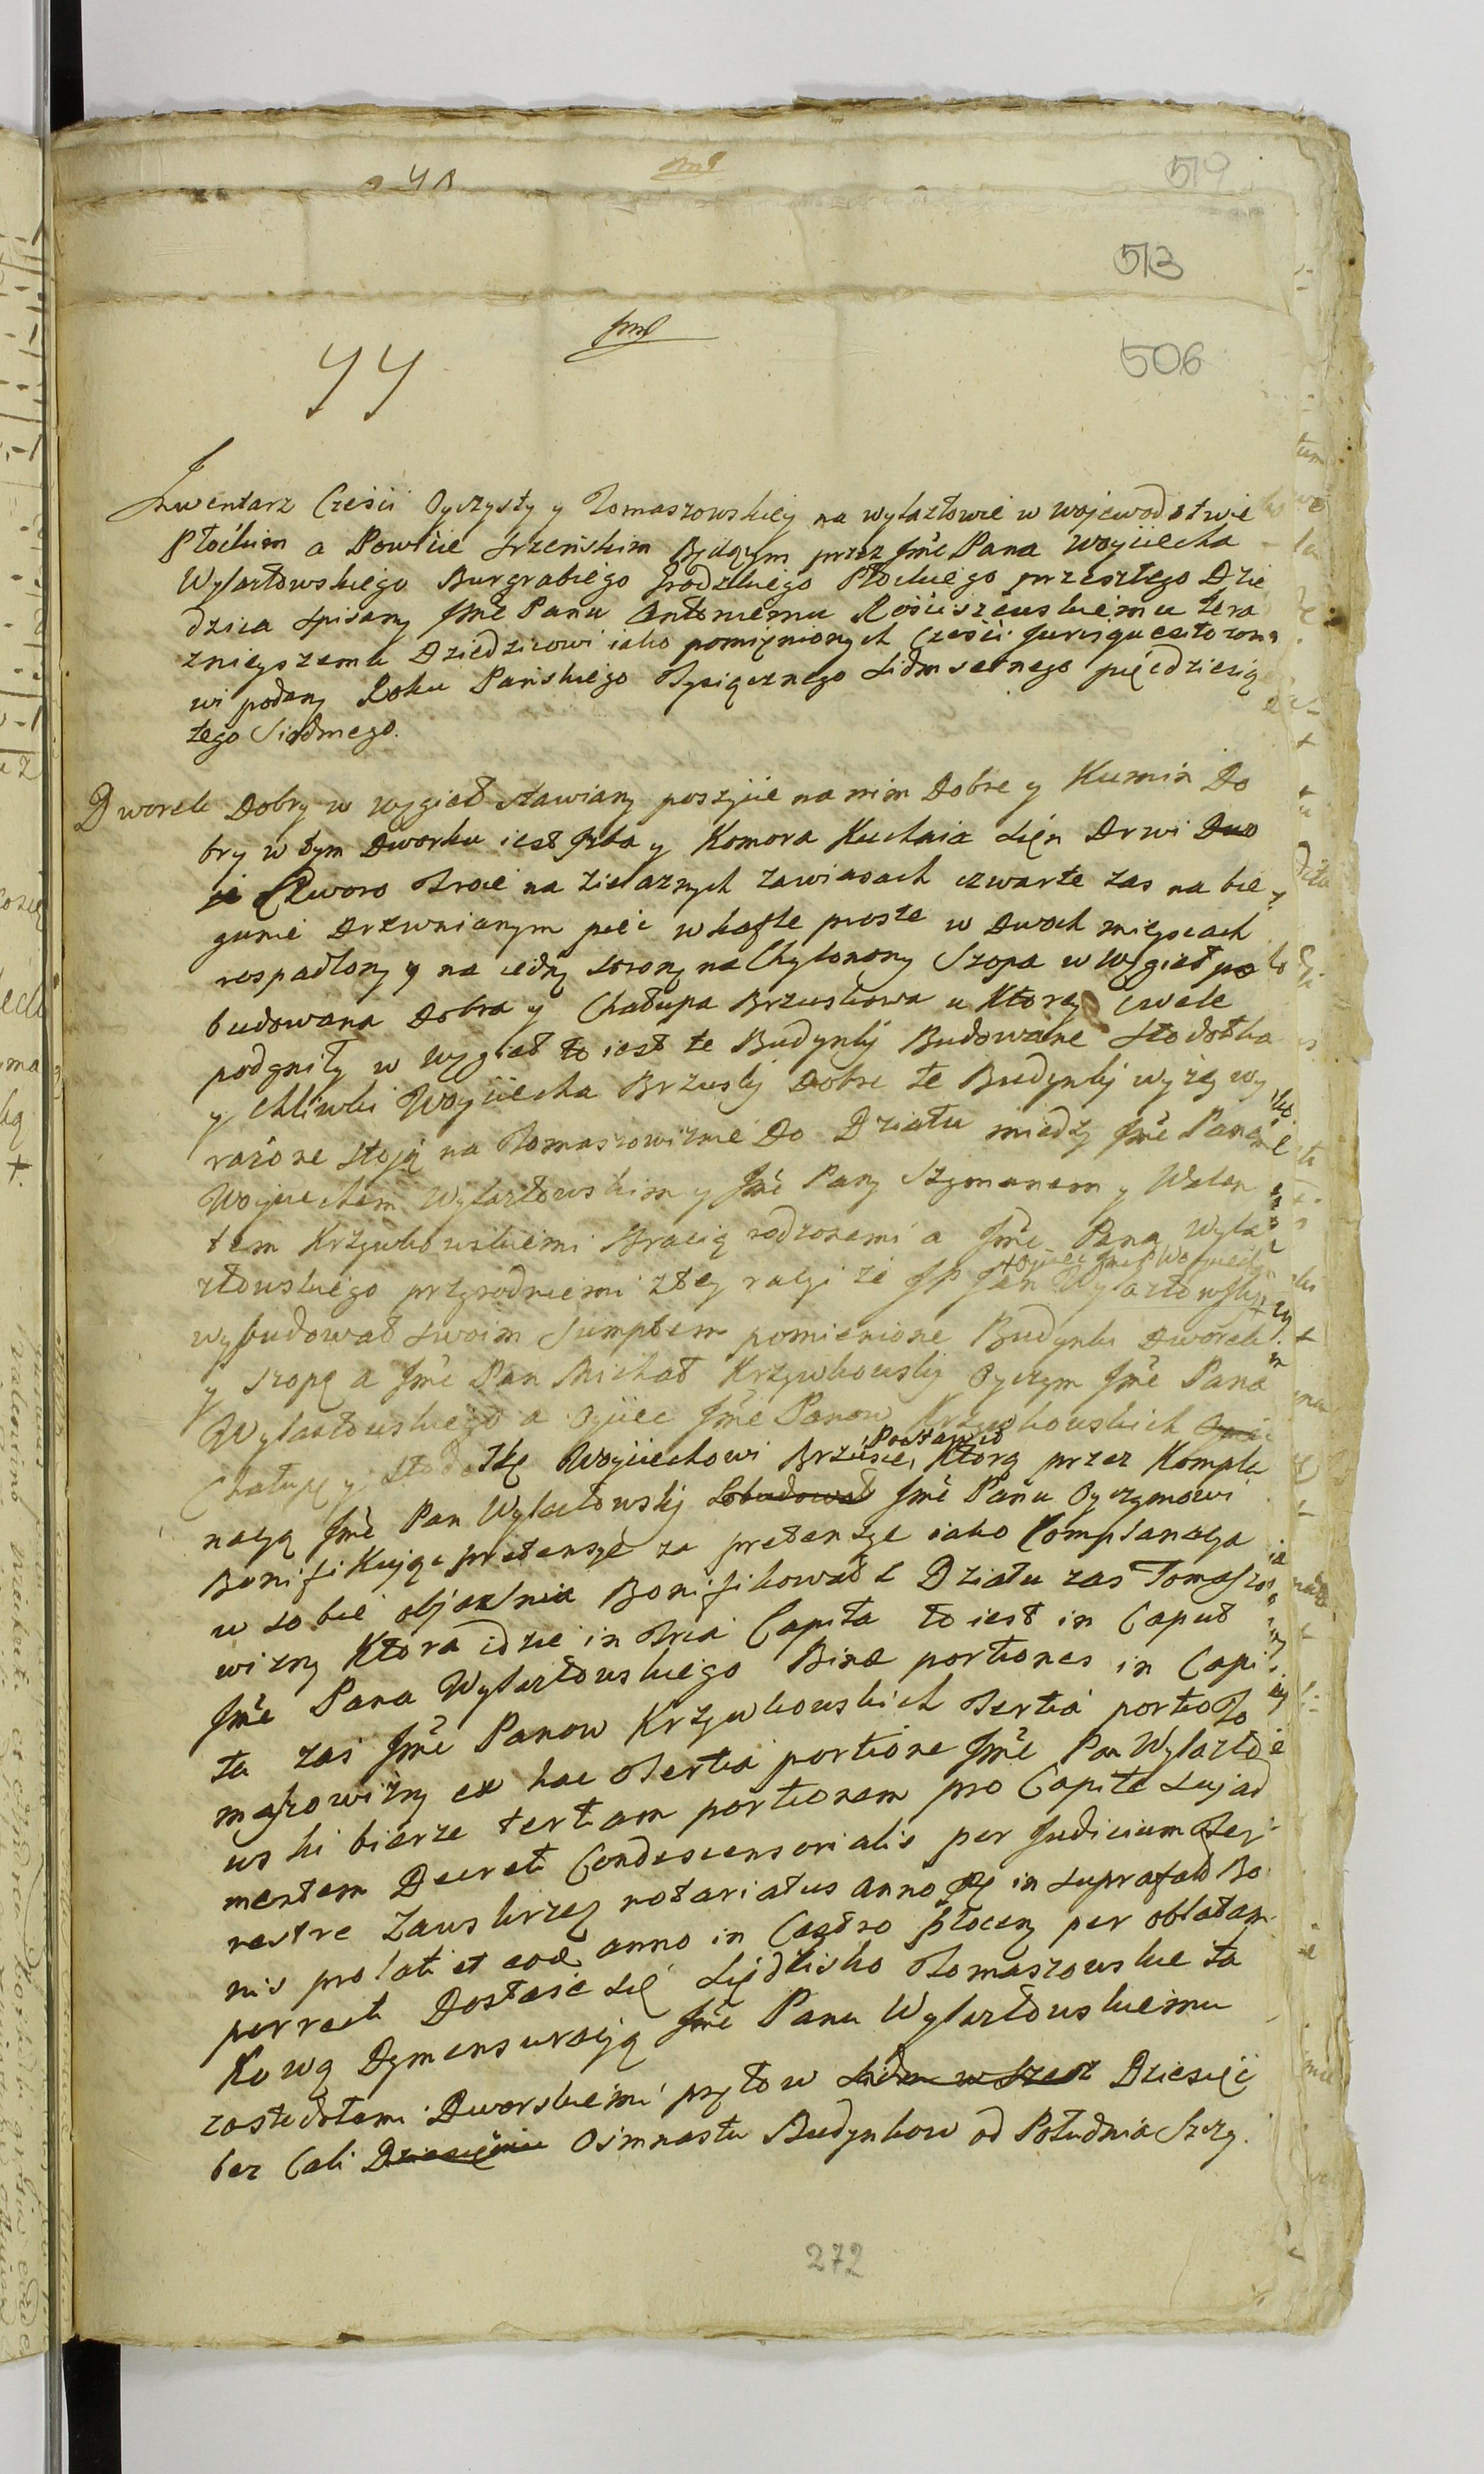 41
519
513
44
506
Inwentarz Cześci Oyczysty y Tomaszowskiey na wylazłowie w wojewodstwie
Płockim a Powiecie Srzeńskim Będącym przez Jmć Pana Woyciecha
Wylazłowskiego Burgrabiego Grodzkiego Płockiego przeszłego Dzie
dzica spisany Jmć Panu Antoniemu Kościszewskiemu tera
znieyszemu Dziedzicowi iako pomięnionych Cześci Jurisquesitorom
wi podany Roku Pańskiego Tysiącznego siedmsetnego pięcdziesią
tego Siodmego.
Dworek Dobry w węgieł stawiany poszycie na nim Dobre y Kumin Do
bry w tym Dworku iest Jzba y Komora Kuchnia Sięn Drwi
Czworo Troie na zielaznych zawiasach czwarte zas na bie
gunie Drzewnianym piec w kafle proste w Dwoch mieyscach
rospadłony y na iedny strony na Chylonony Szopa w Węgieł po
budowana Dobra y Chałupa Brzuskowa u Ktorey Cwele
podgniły w węgieł to iest te Budynky Budowane Stodołka
y Chliwki Woyciecha Brzusky Dobre te Budynky wyżey wy
rażone stoją na Tomaszowiznie Do Działu miedzy Jmć Panem
Woyciechem Wylazłowskim y Jmć Pany Szymonem y Walen
tem Krzywkowskiemi Bracią rodzonemi a Jmć Pana Wyla
złowskiego przyrodniemi z tey racyi że JP Jan Wylazłowsky
+ Oyciec Jmć P Woyciech
wybudował swoim sumptem pomienione Budynki Dworek
y Szopę a Jmć Pan Michał Krzywkowsky Oyczym Jmć Pana
Wylazłowskiego a Oyciec Jmć Panow Krzywkowskich
Chałupę y Stodołkę Woyciechowi Brzusce, Ktorą przez Kompla
Postawił
nacyą Jmć Pan Wylazłowsky Jmć Panu Oyczymowi
Bonifikując pretensye za pretensye iako Complanacya
w sobie objasnia Bonifikował Działu zas Tomaszo
wizny Ktora idzie in Tria Capita to iest in Caput
Jmć Pana Wylazłowskiego Binae portiones in Capi
ta zas Jmć Panow Krzywkowskich Tertia portio To
maszowizny ex hac Tertia portione Jmć Pan Wylazło
wski bierze tertiam portionem pro Capite suo ad
mentem Decreti Condescensorialis per Judicium Ter
restre Zawskrzey notariatus anno in suprafatis Bo
nis prolati et eod anno in Castro Płocen per oblatam
porrecti Dostaie się Siędlisko Tomaszowskie ta
Kową Dymensuracyą Jmć Panu Wylazłowskiemu
zastodołami Dworskiemi prętow Dziesięć
bez Cali Osmnastu Budynkow od Południa Szczy
272